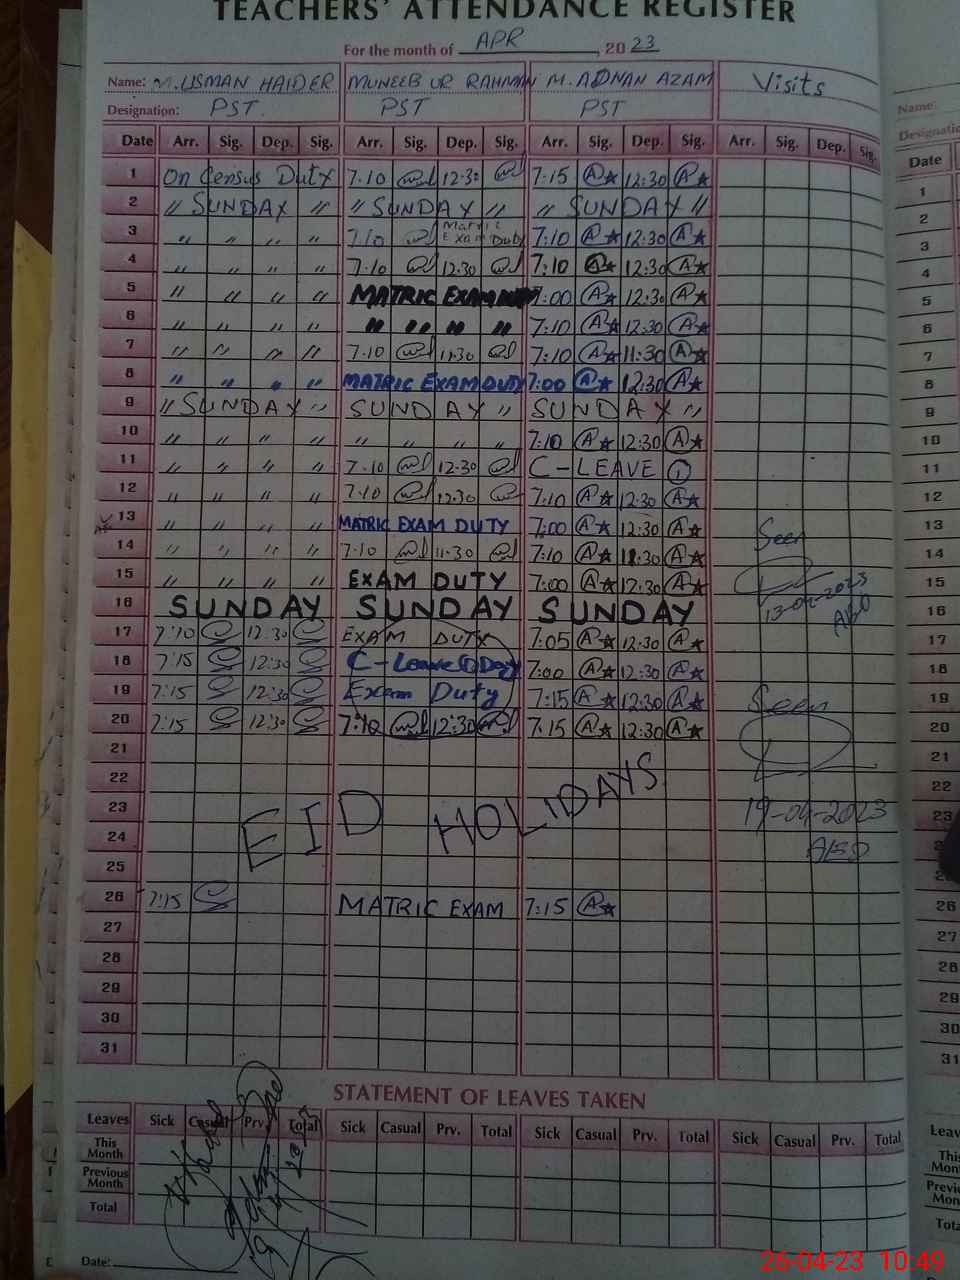 TEACHERS' ATTENDANCE REGISTER
For the month of APR, 2023
Name: M. USMAN HAIDER MUNEEB UR RAHMAN M. ADNAN AZAM Visits Name:
Designation: PST. PST PST Designatio
Date Arr. Sig. Dep. Sig. Arr. Sig. Dep. Sig. Arr. Sig. Dep. Sig. Arr. Sig. Dep. Sig. Date
1 On Census Duty 7.10 12.30 7:15 12:30 1
2 " SUNDAY " " SUNDAY " " SUNDAY " 2
3 " " " " 7.10 Matric Exam Duty 7:10 12:30 3
4 " " " " 7.10 12.30 7:10 12:30 4
5 " " " " MATRIC EXAM 7:00 12:30 5
6 " " " " " " " " 7:10 12:30 6
7 " " " " 7.10 11:30 7:10 11:30 7
8 " " " " MATRIC EXAM DUTY 7:00 12:30 8
9 " SUNDAY " SUNDAY " SUNDAY " 9
10 " " " " " " " " 7:10 12:30 10
11 " " " " 7.10 12.30 C-LEAVE 1 11
12 " " " " 7.10 12.30 7:10 12:30 12
13 " " " " MATRIC EXAM DUTY 7:00 12:30 Seen 13
14 " " " " 7.10 11.30 7:10 14
15 " " " " EXAM DUTY 7:00 12:30 13-04-2023 15
16 SUNDAY SUNDAY SUNDAY AEO 16
17 7:10 12:30 EXAM DUTY 7:05 12:30 17
18 7:15 12:30 C-Leave 1 Day 7:00 12:30 18
19 7:15 12:30 Exam Duty 7:15 12:30 Seen 19
20 7:15 12:30 7:10 12:30 7:15 12:30 20
21 21
22 22
23 EID HOLIDAYS 19-04-2023 23
24 AEO
25
26 7:15 MATRIC EXAM 7:15 26
27 27
28 28
29 29
30 30
31 31
STATEMENT OF LEAVES TAKEN
Leaves Sick Casual Prv. Total Sick Casual Prv. Total Sick Casual Prv. Total Sick Casual Prv. Total Leav
This Month This Mon
Previous Month Previ Mon
Total Tota
Date:
26-04-23 10:49